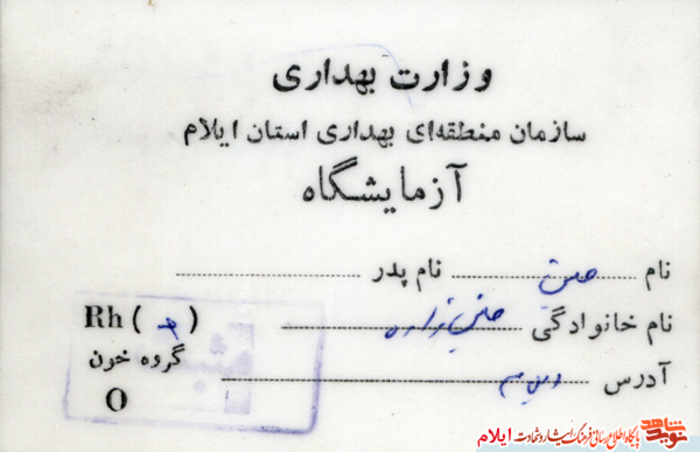 وزارت بهداری
سازمان منطقه‌ای بهداری استان ایلام
آزمایشگاه
نام ........ نام پدر ........
نام خانوادگی ........
Rh ( )
گروه خون
آدرس ........
O
مثبت
نوید شاهد
پایگاه اطلاع رسانی فرهنگ ایثار و شهادت ایلام